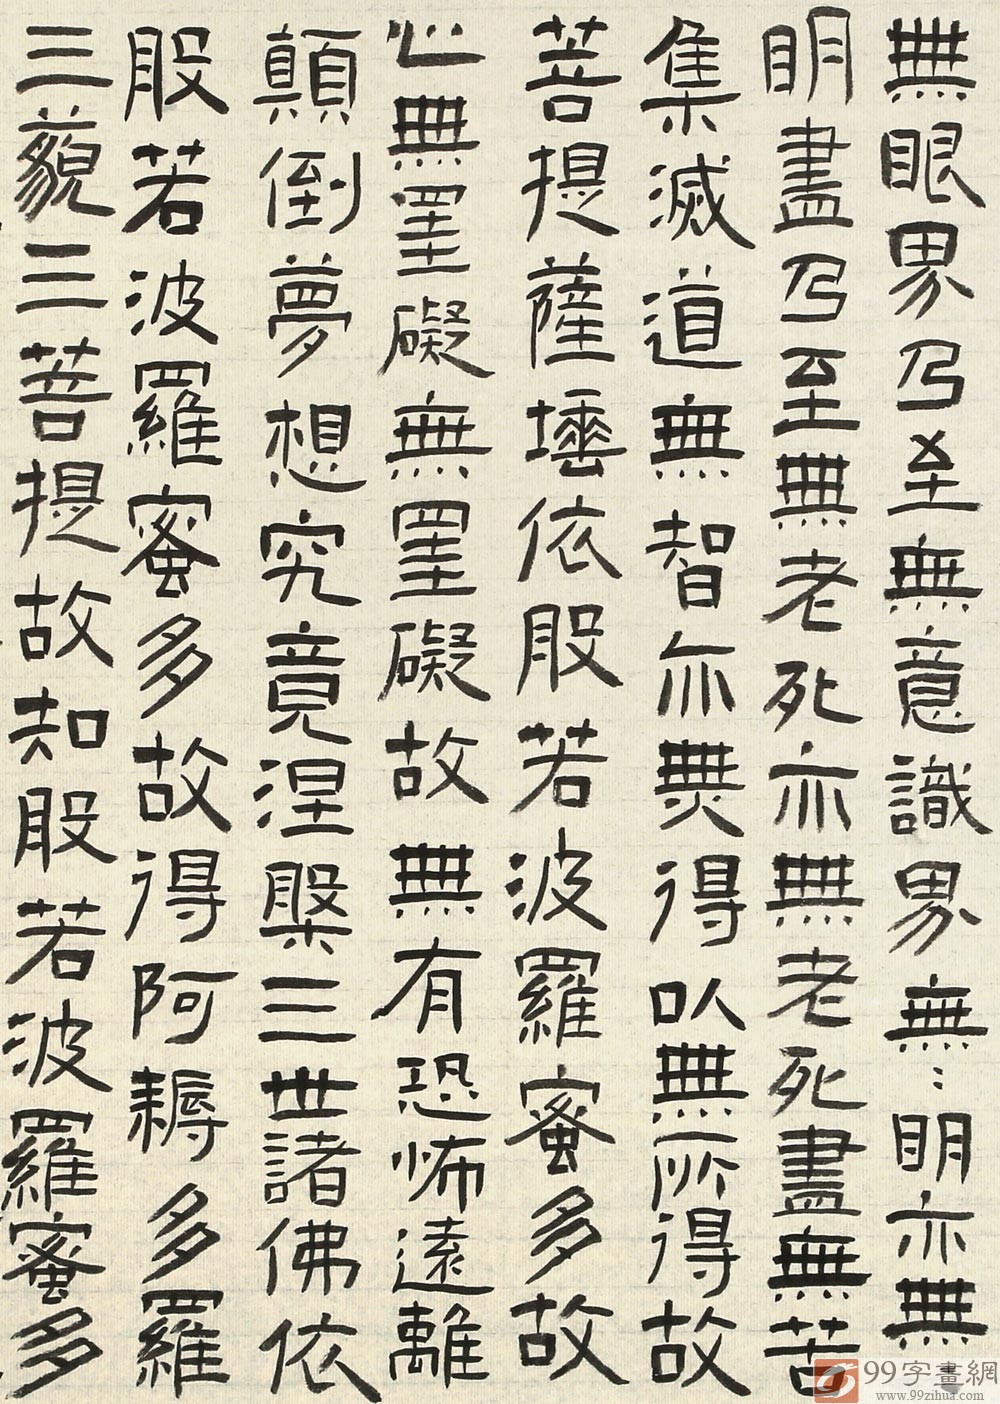 無眼界乃至無意識界無：明亦無
明盡乃至無老死亦無老死盡無苦
集滅道無智亦無得以無所得故
菩提薩埵依般若波羅蜜多故
心無罣礙無罣礙故無有恐怖遠離
顛倒夢想究竟涅槃三世諸佛依
般若波羅蜜多故得阿耨多羅
三藐三菩提故知般若波羅蜜多
99字畫網
www.99zihua.com